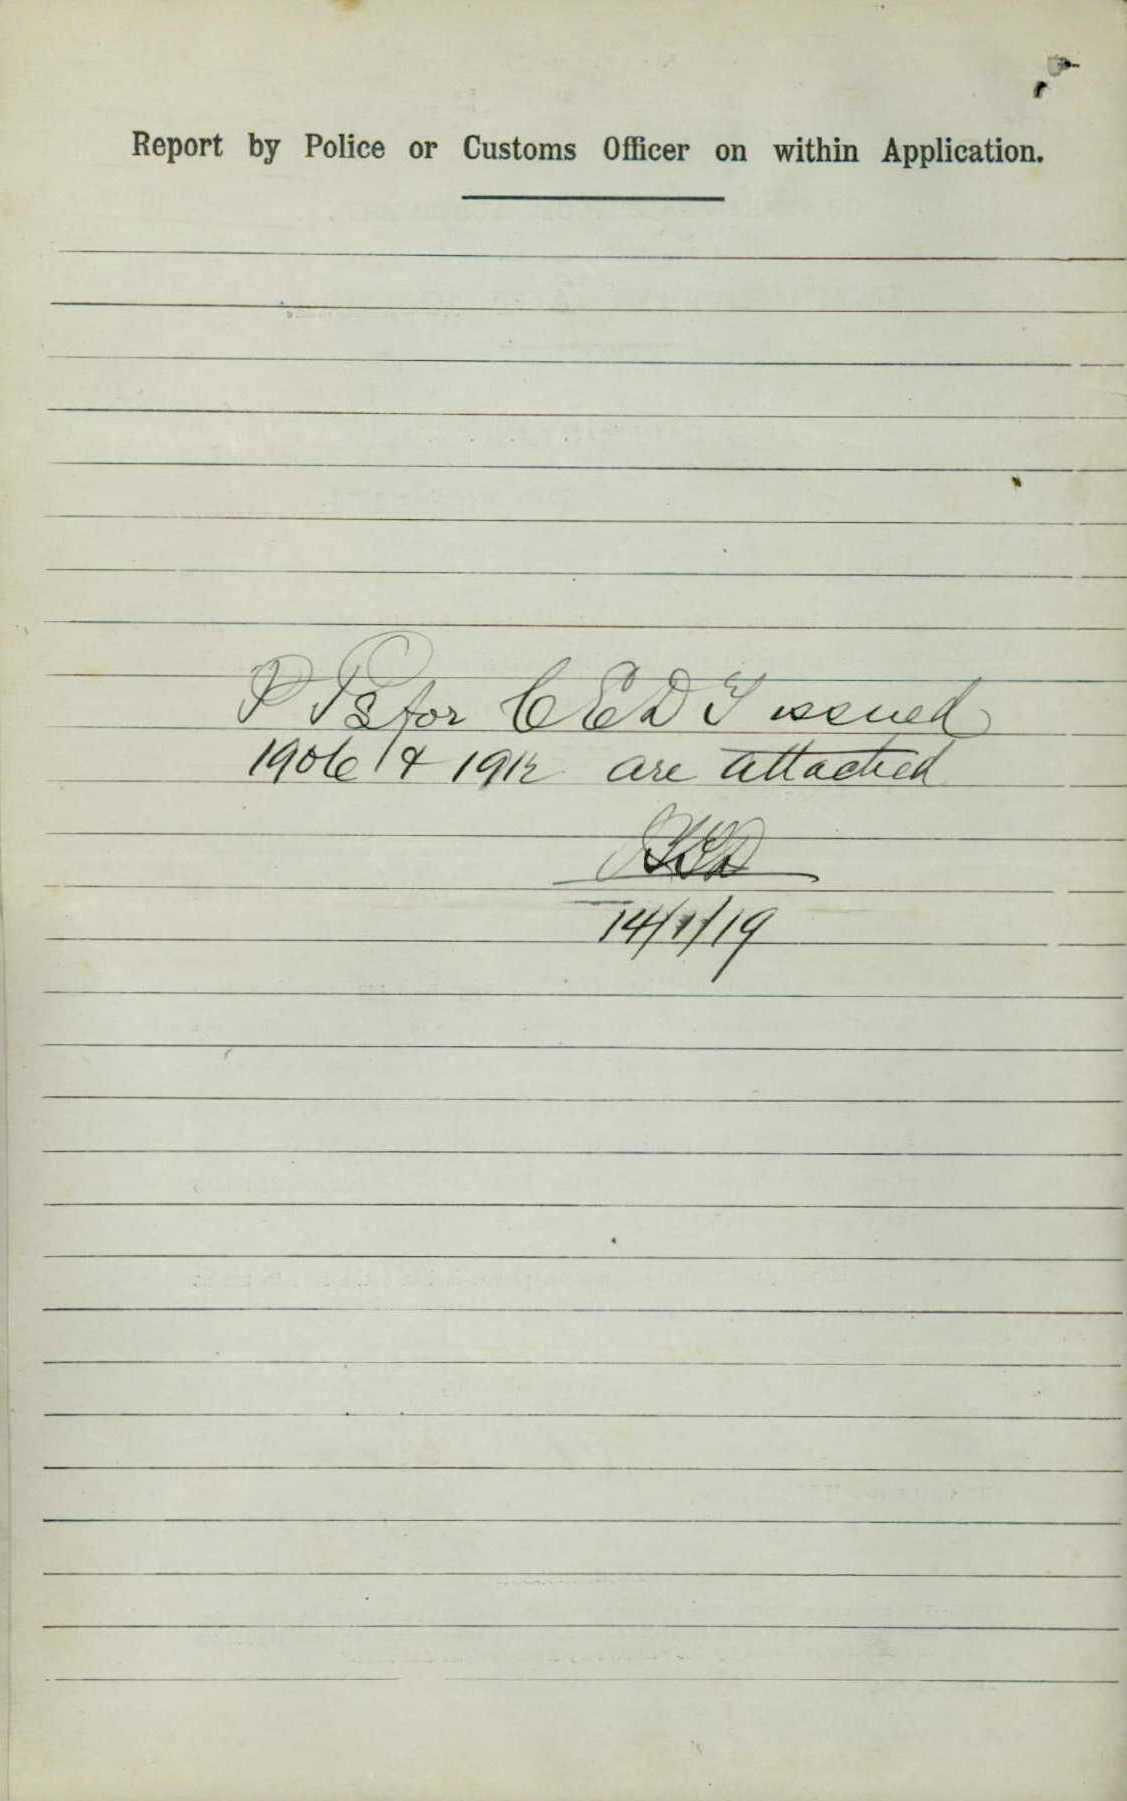 Report by Police or Customs Officer on within Application.
for CEDT issued
1906 & 1912 are attached
14/1/19